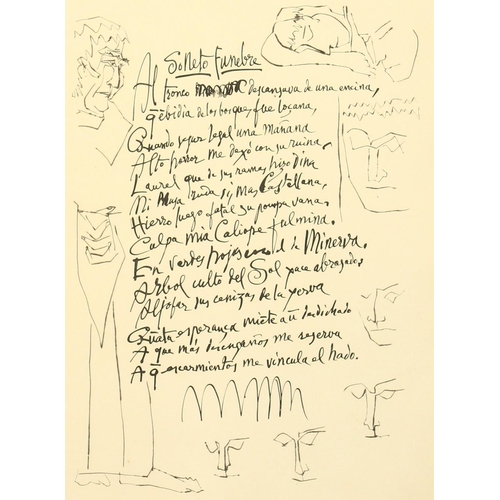 Soneto Funebre
Al tronco descansava de una encina,
q̄ ēbidia de los bosques fue loçana,
Quando segur legal una mañana
Alto horror me dexó con su ruina.
Laurel que de sus ramas hizo dina
Mi Musa ruda sí, mas Castellana,
Hierro luego fatal su pompa vana.
Culpa mia Caliope fulmina.
En verdes hojas cano el de Minerva.
Arbol culto del Sol yace abrazado,
Aljofar sus cenizas de la yerva
Quāta esperança miēte a ū desdichado
A que más desengaños me reserva
A q̄ escarmientos me vincula el hado.